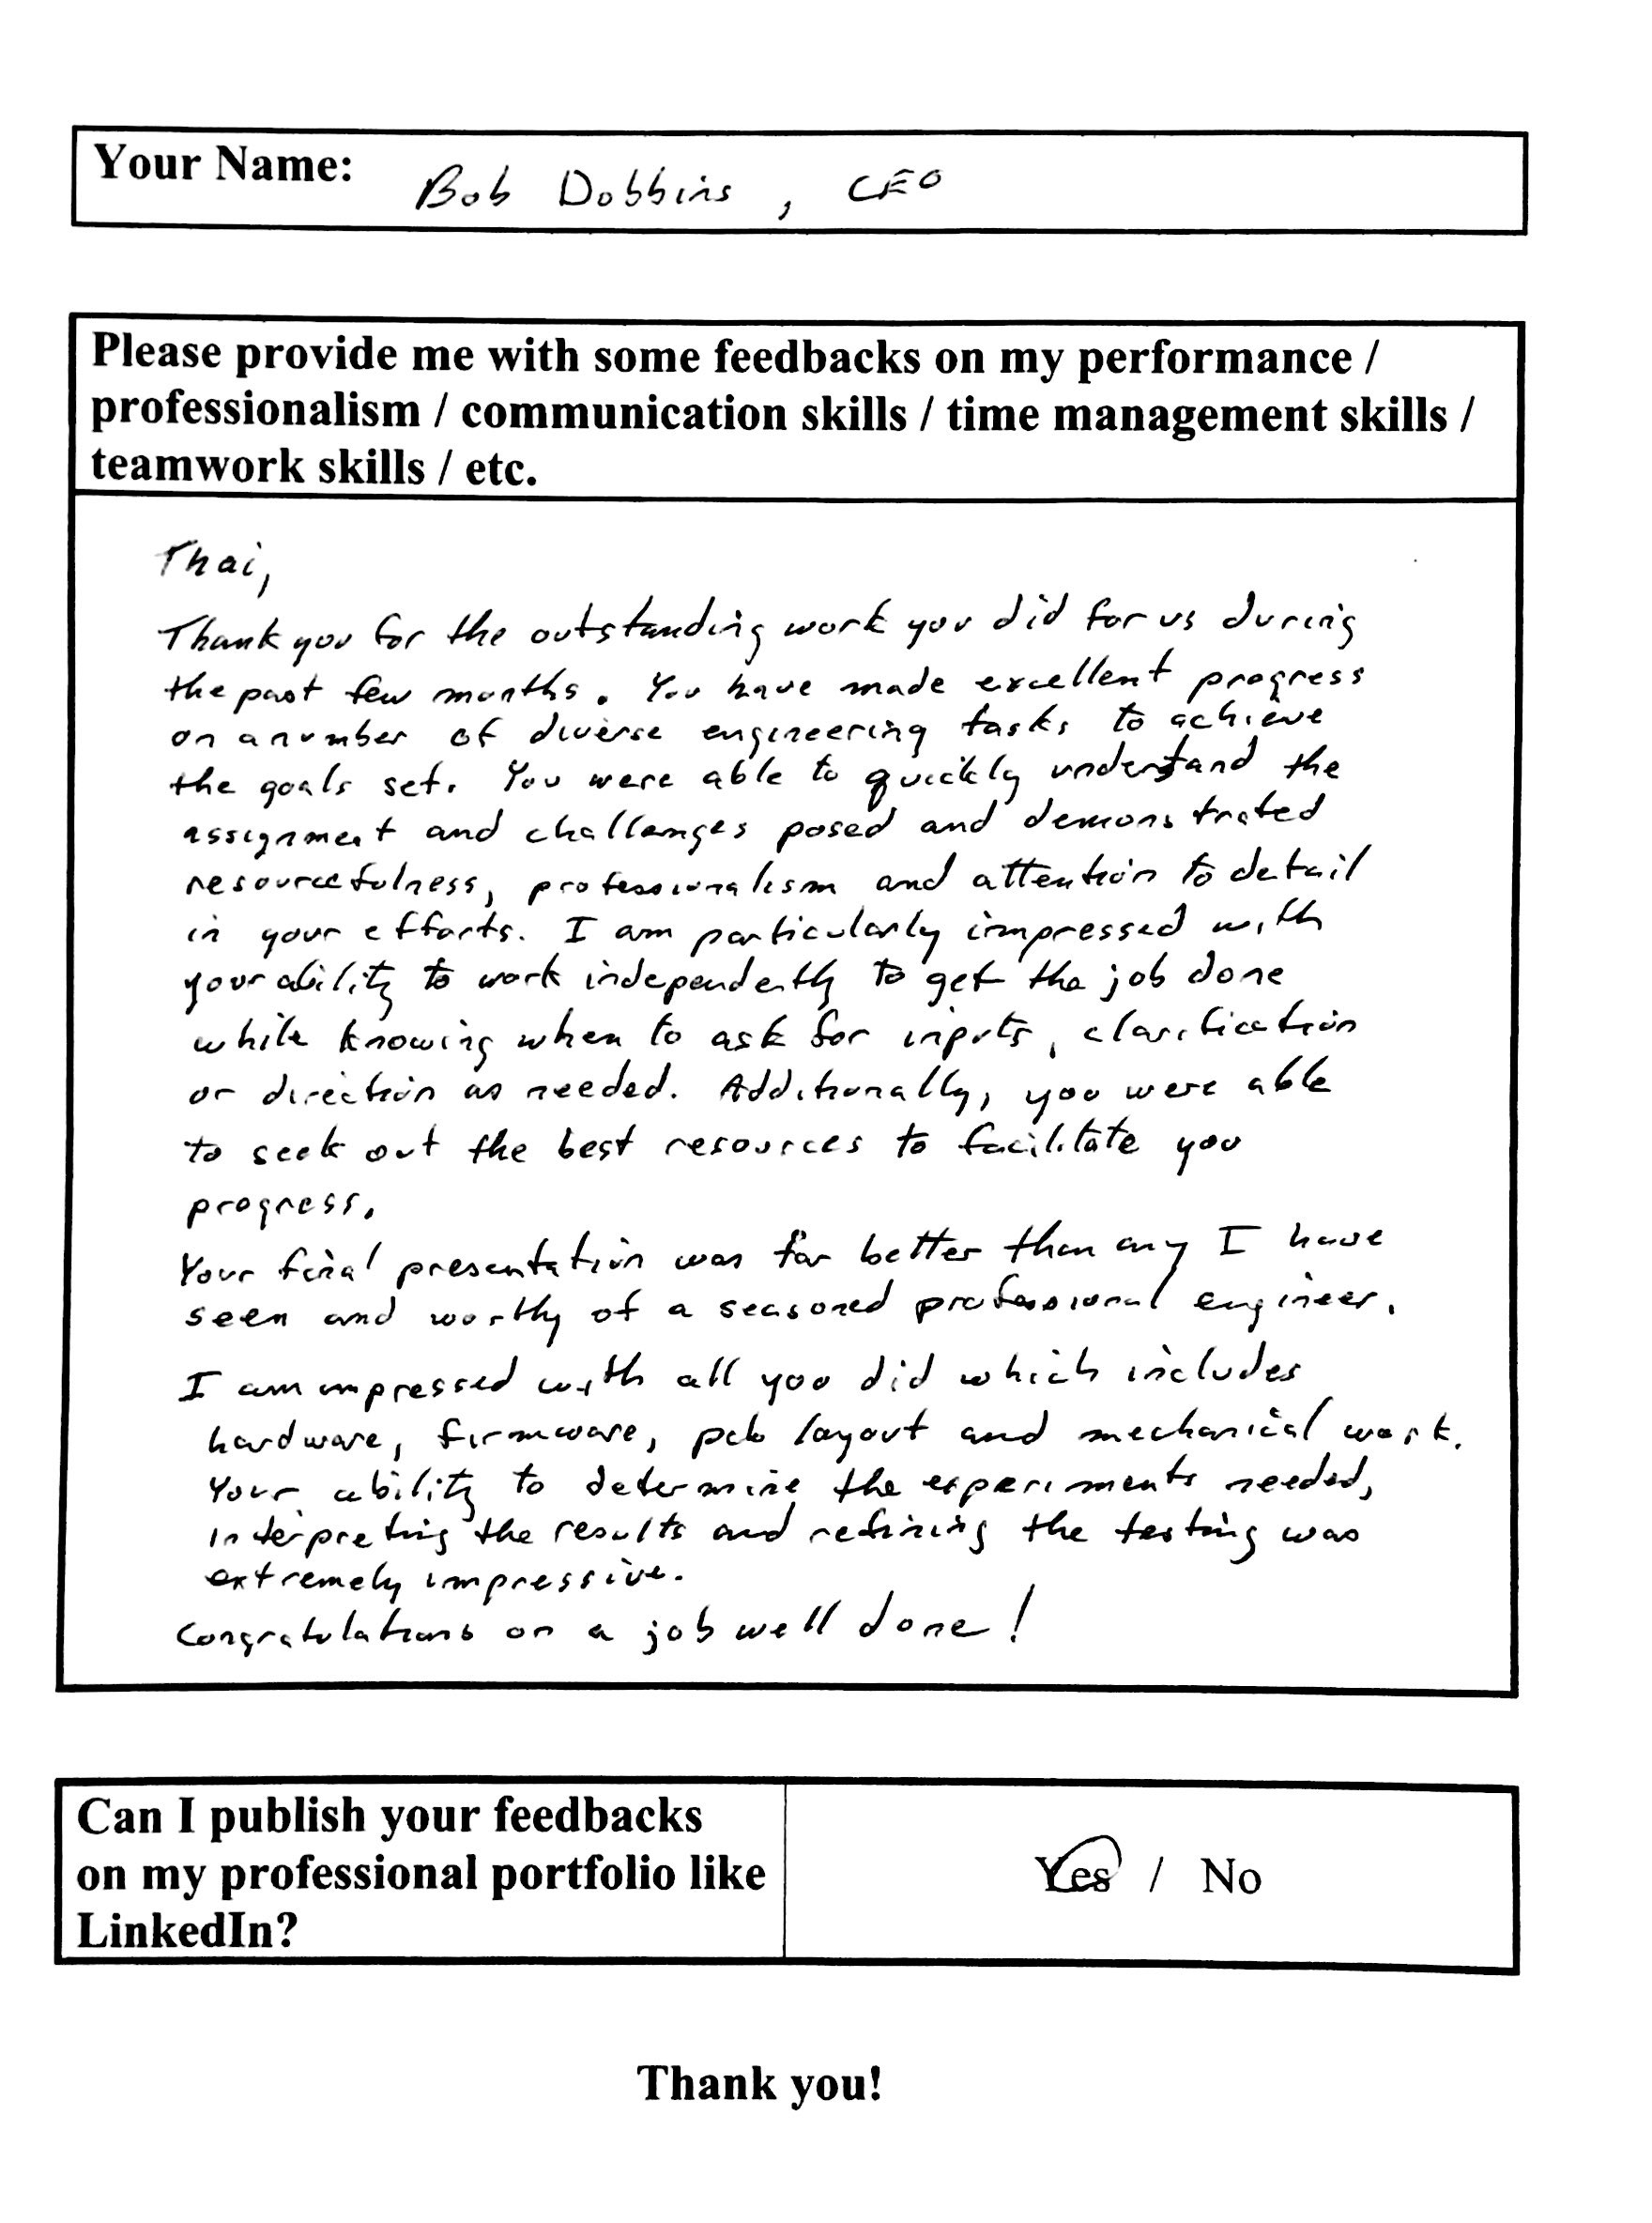 Your Name: Bob Dobbins, CEO
Please provide me with some feedbacks on my performance /
professionalism / communication skills / time management skills /
teamwork skills / etc.
Thai,
Thank you for the outstanding work you did for us during
the past few months. You have made excellent progress
on a number of diverse engineering tasks to achieve
the goals set. You were able to quickly understand the
assignment and challenges posed and demonstrated
resourcefulness, professionalism and attention to detail
in your efforts. I am particularly impressed with
your ability to work independently to get the job done
while knowing when to ask for inputs, clarification
or direction as needed. Additionally, you were able
to seek out the best resources to facilitate you
progress.
Your final presentation was far better than any I have
seen and worthy of a seasoned professional engineer.
I am impressed with all you did which includes
hardware, firmware, pcb layout and mechanical work.
Your ability to determine the experiments needed,
interpreting the results and refining the testing was
extremely impressive.
Congratulations on a job well done!
Can I publish your feedbacks
on my professional portfolio like
LinkedIn?
Yes / No
Thank you!